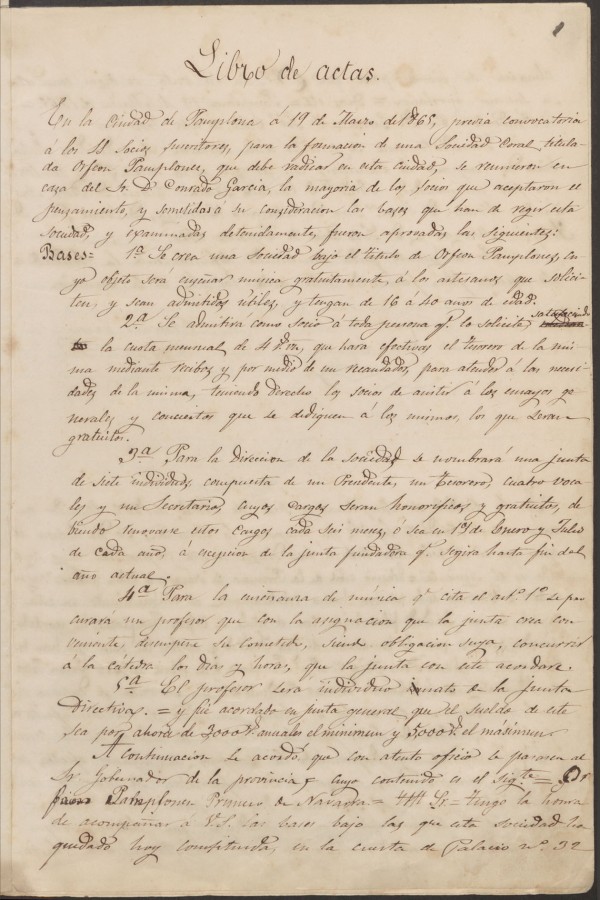 1
Libro de actas.
En la Ciudad de Pamplona á 19 de Marzo de 1865, previa convocatoria
á los SS. Socios suscritores, para la formacion de una Sociedad Coral, titula-
da Orfeon Pamplones, que debe radicar en esta ciudad, se reunieron en
casa del Sr. D. Conrado Garcia, la mayoria de los socios que aceptaron el
pensamiento, y sometidas á su consideracion las bases que han de regir esta
sociedad, y examinadas detenidamente, fueron aprovadas las siguientes:
Bases= 1ª Se crea una sociedad bajo el titulo de Orfeon Pamplones, cu-
yo objeto será enseñar música gratuitamente, á los artesanos que solici-
ten, y sean admitidos utiles, y tengan de 16 á 40 años de edad.
2ª Se admitirá como socio á toda persona q. lo solicite, satisfaciendo
la cuota mensual de 4 Rvn, que hara efectivas el tesorero de la mis-
ma mediante recibos y por medio de un recaudador, para atender á las necesi-
dades de la misma, teniendo derecho los socios de asistir á los ensayos ge-
nerales y conciertos que se dediquen á los mismos, los que seran
gratuitos.
3ª Para la Direccion de la sociedad se nombrará una junta
de siete individuos, compuesta de un Presidente, un tesorero, cuatro voca-
les y un Secretario, cuyos cargos seran honorificos y gratuitos, de-
biendo renovarse estos cargos cada seis meses, ó sea en 1os de Enero y Julio
de cada año, á excepcion de la junta fundadora q. segira hasta fin del
año actual.
4ª Para la enseñanza de música q. cita el artº 1º se pro-
curará un profesor que con la asignacion que la junta crea con-
veniente, desempeñe su cometido, siendo obligacion suya, concurrir
á la catedra los dias y horas, que la junta con este acordare.
5ª El profesor será individuo nato de la junta
Directiva. = y fué acordado en junta general que el sueldo de este
sea por ahora de 3000 rs. anuales el minimun y 5000 rs. el maximun
A continuacion se acordó que con atento oficio se pasaran al
Sr. Gobernador de la provincia, cuyo contenido es el sigte = Or
Pamplones Primero de Navarra = Sr = Tengo la honra
de acompañar á V.S. las bases bajo las que esta sociedad ha
quedado hoy constituida, en la cuesta de Palacio nº 32